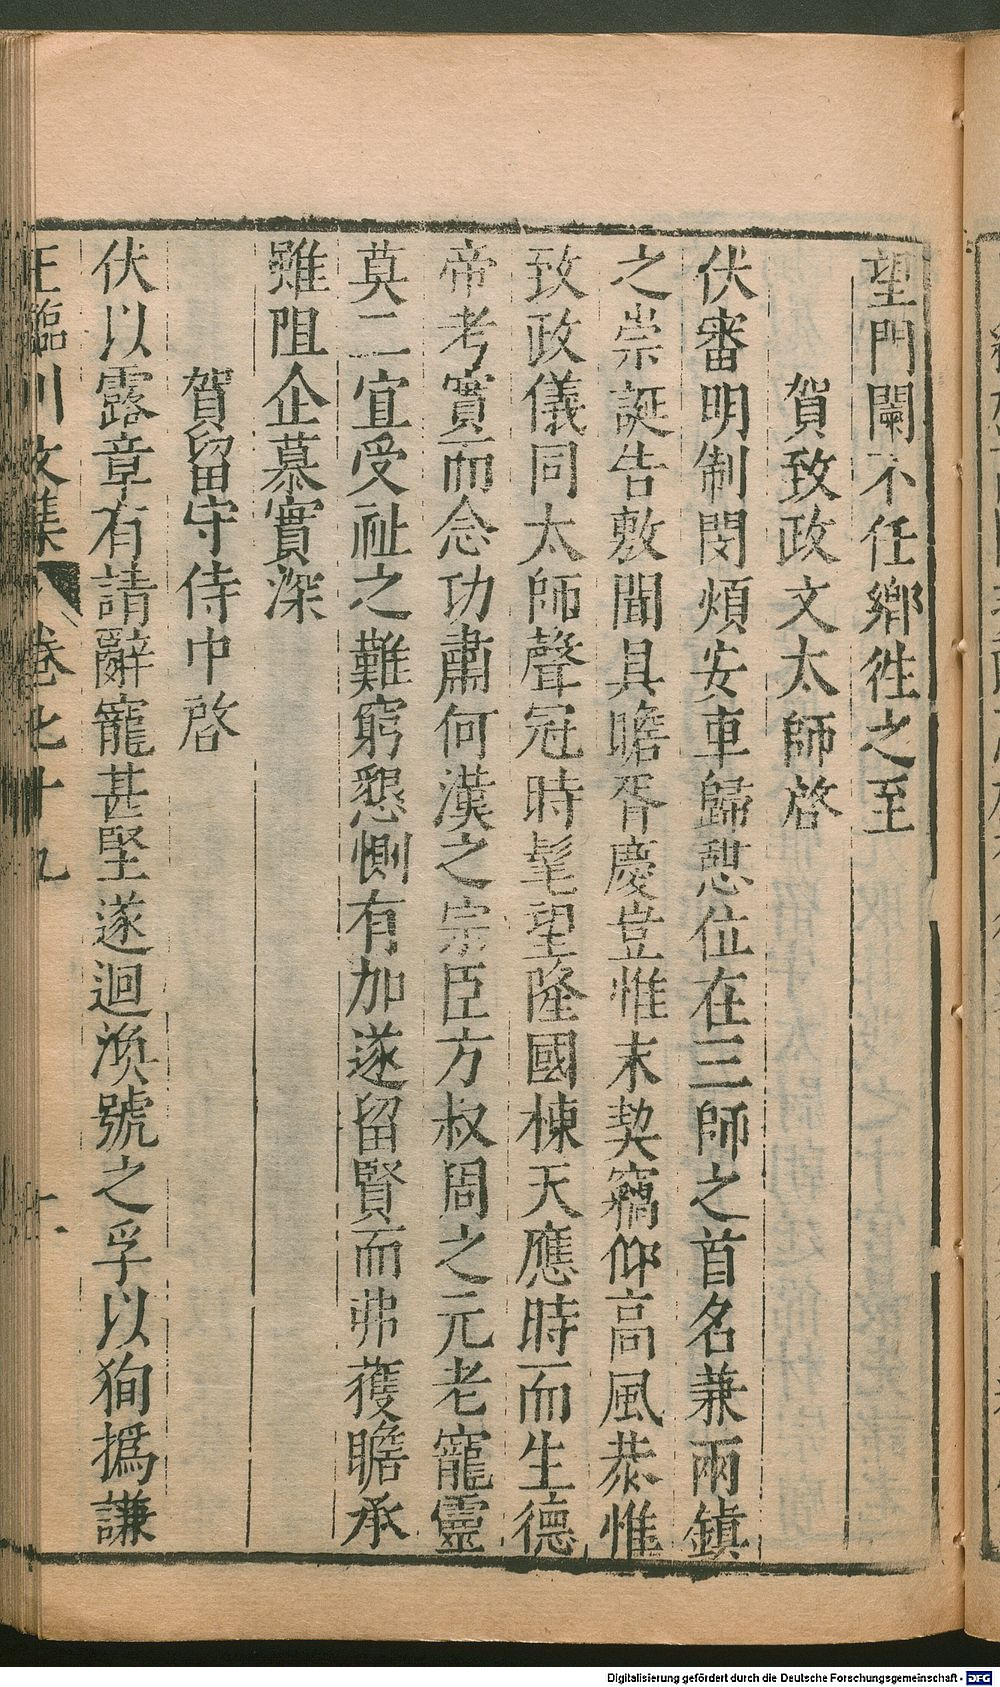 望門闌不任鄉徃之至
賀致政文太師啓
伏審明制閔煩安車歸憩位在三師之首名兼兩鎮
之崇誕告敷聞具瞻胥慶豈惟末契竊仰高風恭惟
致政儀同太師聲冠時髦望隆國棟天應時而生德
帝考實而念功肅何漢之宗臣方叔周之元老寵靈
莫二宜受祉之難窮懇惻有加遂留賢而弗獲瞻承
雖阻企慕實深
賀留守侍中啓
伏以露章有請辭寵甚堅遂迴渙號之孚以狥撝謙
王臨川文集 卷七十九
十一
Digitalisierung gefördert durch die Deutsche Forschungsgemeinschaft - DFG